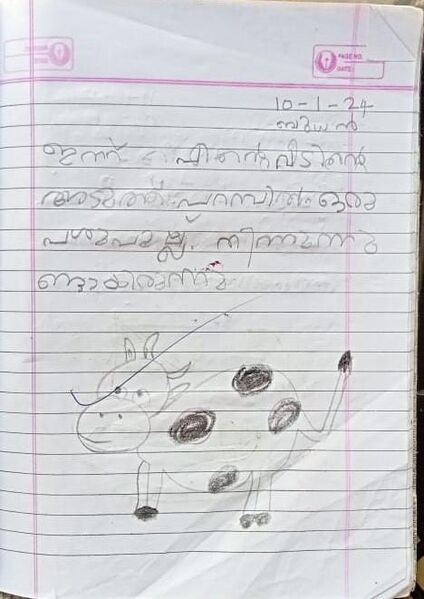 PAGE NO.
DATE:
10-1-24
ബുധൻ
ഇന്ന് എന്റെ വീടിന്റെ
അടുത്ത പറമ്പിൽ ഒരു
പശു പുല്ല് തിന്നുന്നു
ണ്ടായിരുന്നു